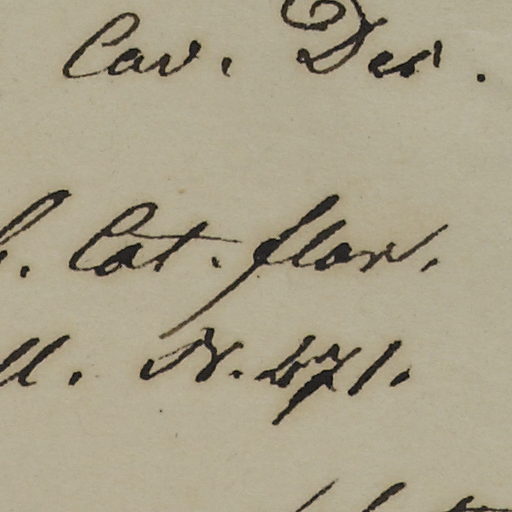 Cav. Des.
. Cat. flor.
ll. N. 271.